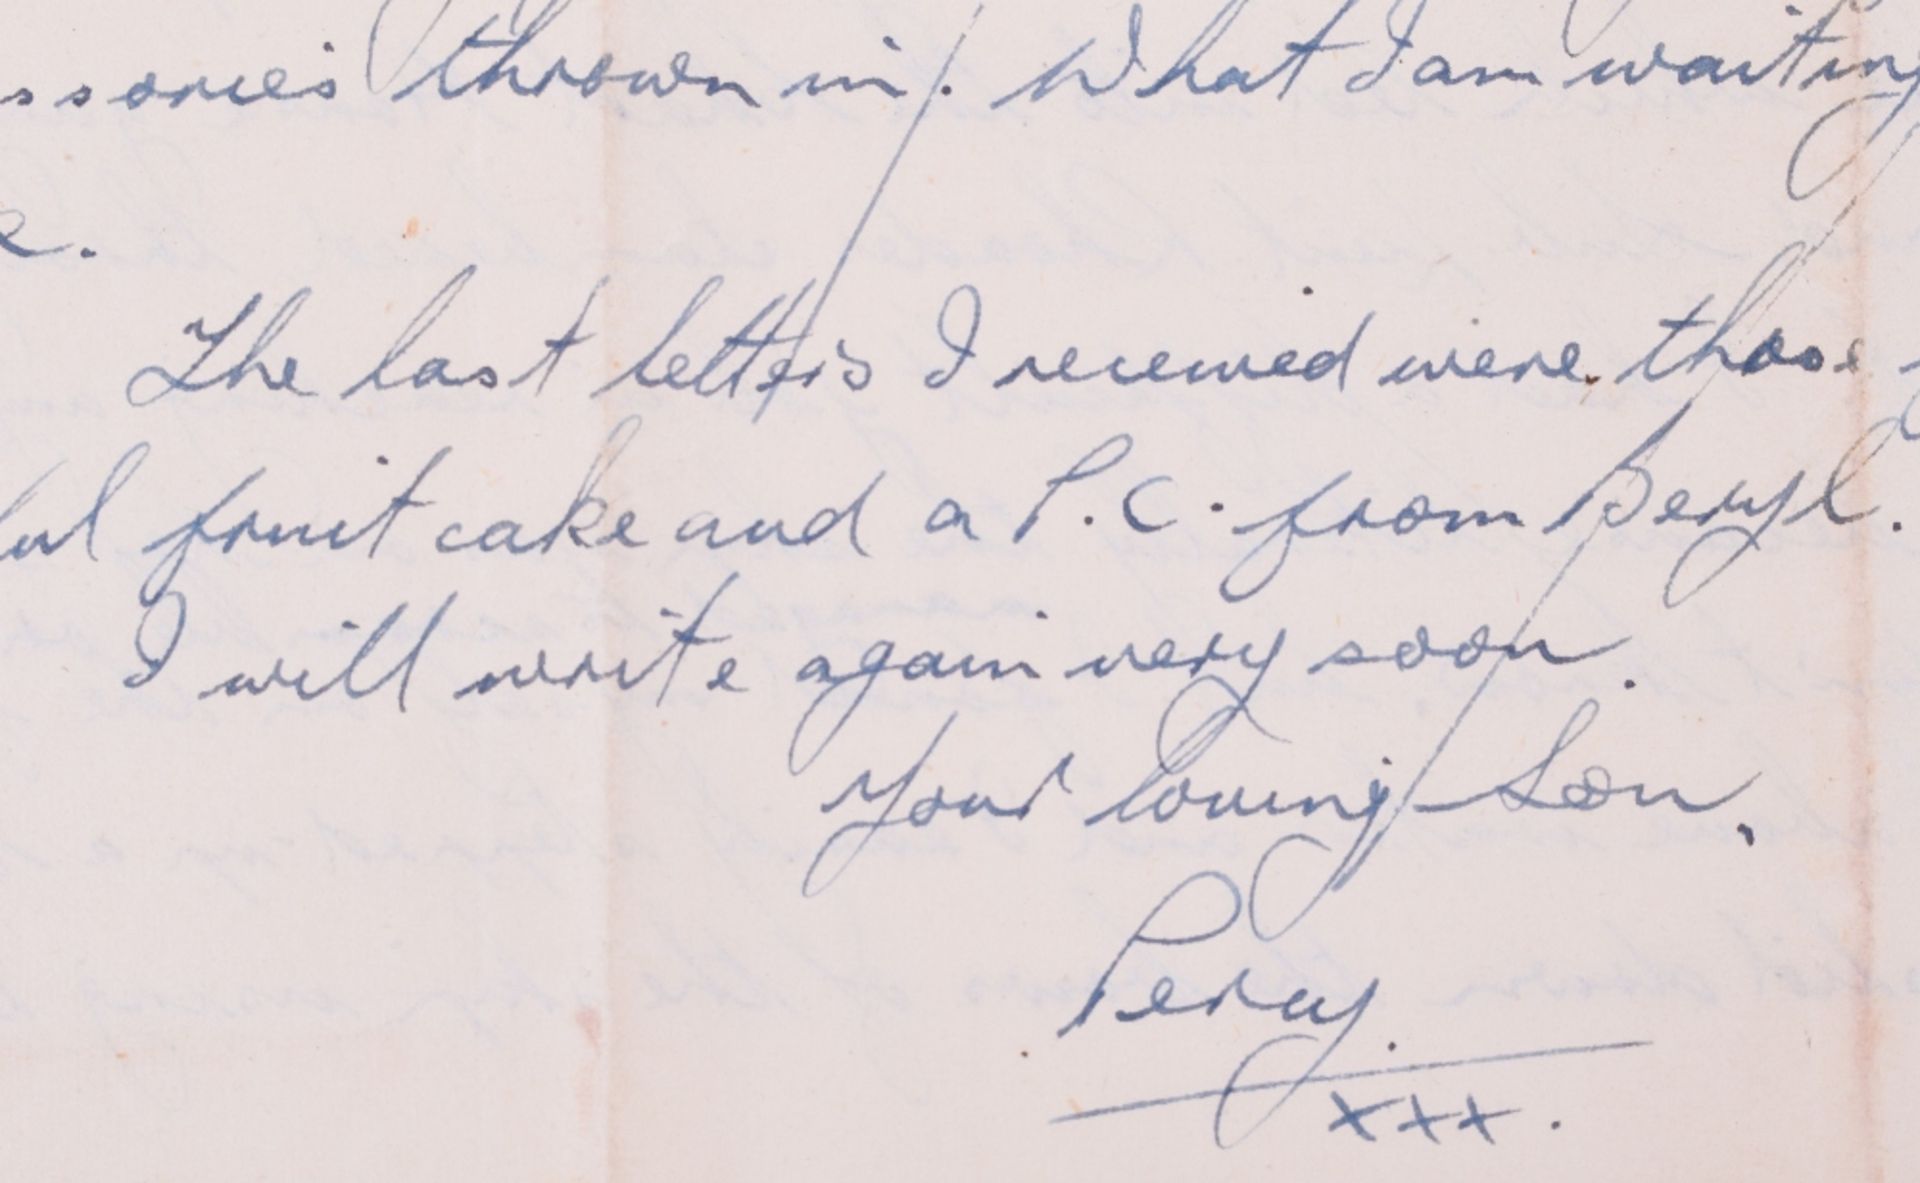 ssories thrown in. What I am waiting
e.
The last letters I received were those
ful fruit cake and a P.C. from Beryl.
I will write again very soon.
Your loving Son,
Percy.
xxx.